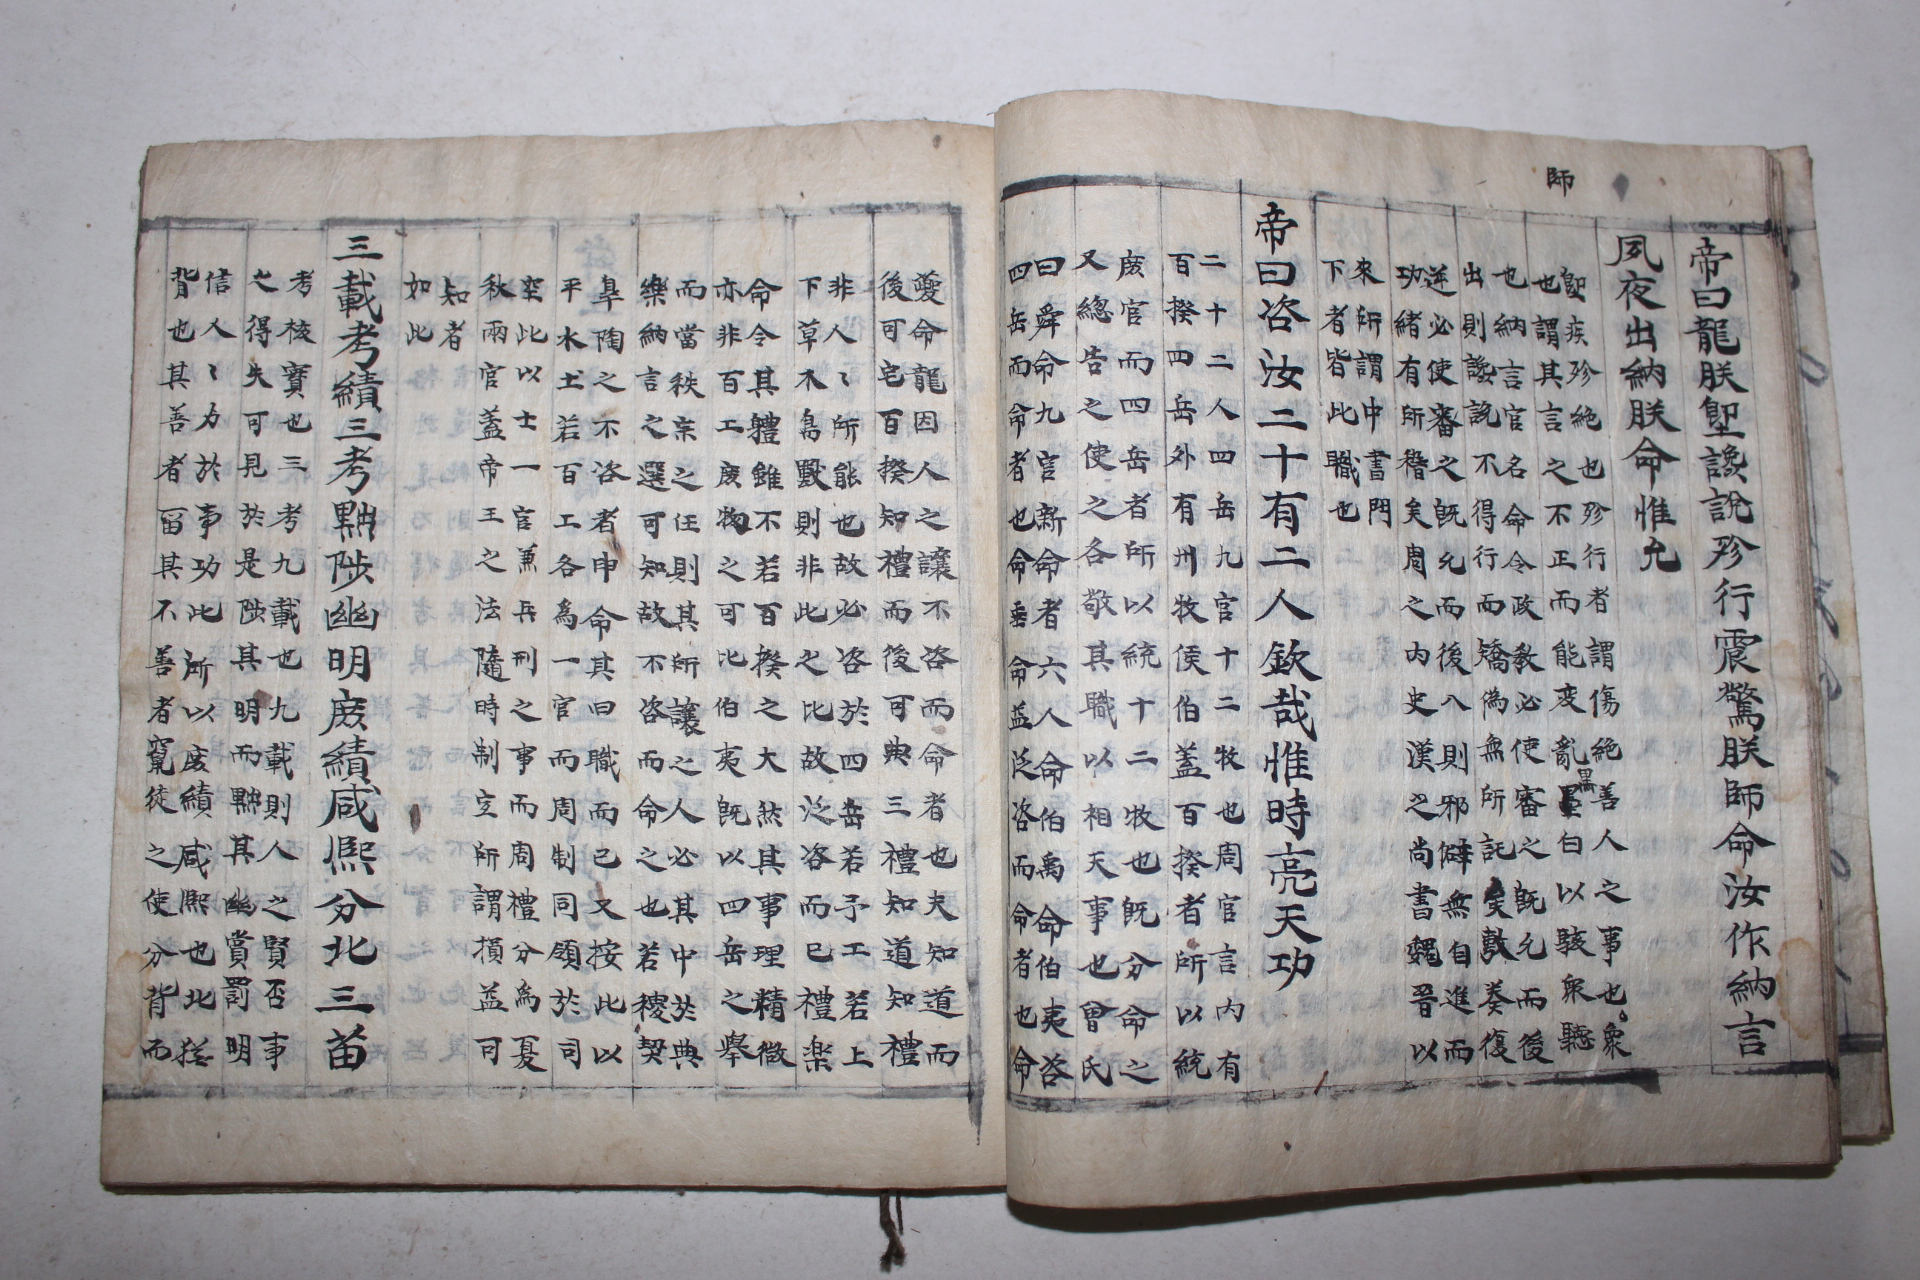 師
帝曰龍朕堲讒說殄行震驚朕師命汝作納言
夙夜出納朕命惟允
堲疾殄絶也殄行者謂傷絶善人之事也衆
也謂其言之不正而能变亂黑白以駭衆聽
也納言官名命令政教必使審之旣允而後
出則讒說不得行而矯僞無所託矣敷奏復
逆必使審之旣允而後入則邪僻無自進而
功緖有所稽矣周之内史漢之尚書魏晉以
來所謂中書門
下者皆此職也
帝曰咨汝二十有二人欽哉惟時亮天功
二十二人四岳九官十二牧也周官言内有
百揆四岳外有州牧侯伯蓋百揆者所以統
庶官而四岳者所以統十二牧也旣分命之
又總告之使之各敬其職以相天事也曾氏
曰舜命九官新命者六人命伯禹命伯夷咨
四岳而命者也命垂命益泛咨而命者也命
夔命龍因人之讓不咨而命者也夫知道而
後可宅百揆知禮而後可典三禮知道知禮
非人人所能也故必咨於四岳若予工若上
下草木鳥獸則非此之比故泛咨而已禮楽
命令其軆雖不若百揆之大然其事理精微
亦非百工庶物之可比伯夷旣以四岳之擧
而當秩宗之任則其所讓之人必其中於典
樂納言之選可知故不咨而命之也若稷契
臯陶之不咨者申命其曰職而已又按此以
平水土若百工各爲一官而周制同領於司
空此以士一官兼兵刑之事而周禮分爲夏
秋兩官蓋帝王之法隨時制宜所謂損益可
知者
如此
三載考績三考黜陟幽明庶績咸熙分北三苗
考核實也三考九載也九載則人之賢否事
之得失可見於是陟其明而黜其幽賞罰明
信人〻力於事功此所以庶績咸熙也北猶
背也其善者留其不善者竄徙之使分背而